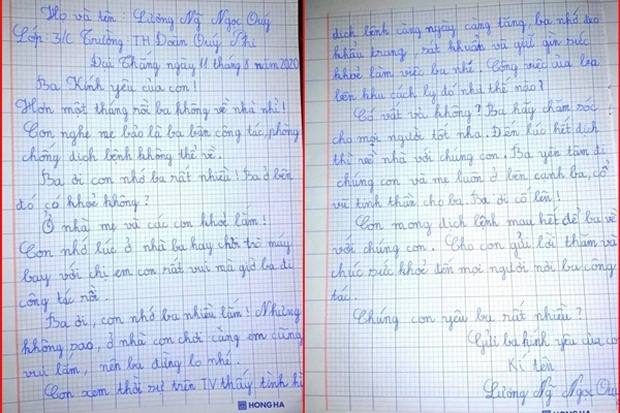 Họ và tên Lương Ng̃ Ngọc Quý
Lớp: 3/C Trường: TH Đoàn Quý Phi
Đại Thắng ngày 11 tháng 8 năm 2020
Ba Kính yêu của con!
Hơn một tháng rồi ba không về nhà nhỉ!
Con nghe mẹ bảo là ba bận công tác, phòng
chống dịch bệnh không thể về.
Ba ơi con nhớ ba rất nhiều! Ba ở bên
đó có khoẻ không?
Ở nhà mẹ và các con khoẻ lắm!
Con nhớ lúc ở nhà ba hay chơi trò máy
bay với chị em con rất vui mà giờ ba đi
công tác rồi.
Ba ơi, con nhớ ba nhiều lắm! Nhưng
không sao, ở nhà con chơi cùng em cũng
vui lắm, nên ba đừng lo nhé.
Con xem thời sự trên TV thấy tình hì
HONG HA
dịch bệnh càng ngày càng tăng, ba nhớ đeo
khẩu trang, sát khuẩn và giữ gìn sức
khoẻ làm việc ba nhé. Công việc của ba
bên khu cách ly đó như thế nào?
Có vất vả không? Ba hãy chăm sóc
cho mọi người tốt nha. Đến lúc hết dịch
thì về nhà với chúng con. Ba yên tâm đi
chúng con và mẹ luôn ở bên cạnh ba, cổ
vũ tinh thần cho ba. Ba ơi cố lên!
Con mong dịch bệnh mau hết để ba về
với chúng con. Cho con gửi lời thăm và
chúc sức khoẻ đến mọi người nơi ba công
tác.
Chúng con yêu ba rất nhiều?
Gửi ba kính yêu của co
Kí tên
Lương Ng̃ Ngọc Quý
HONG HA